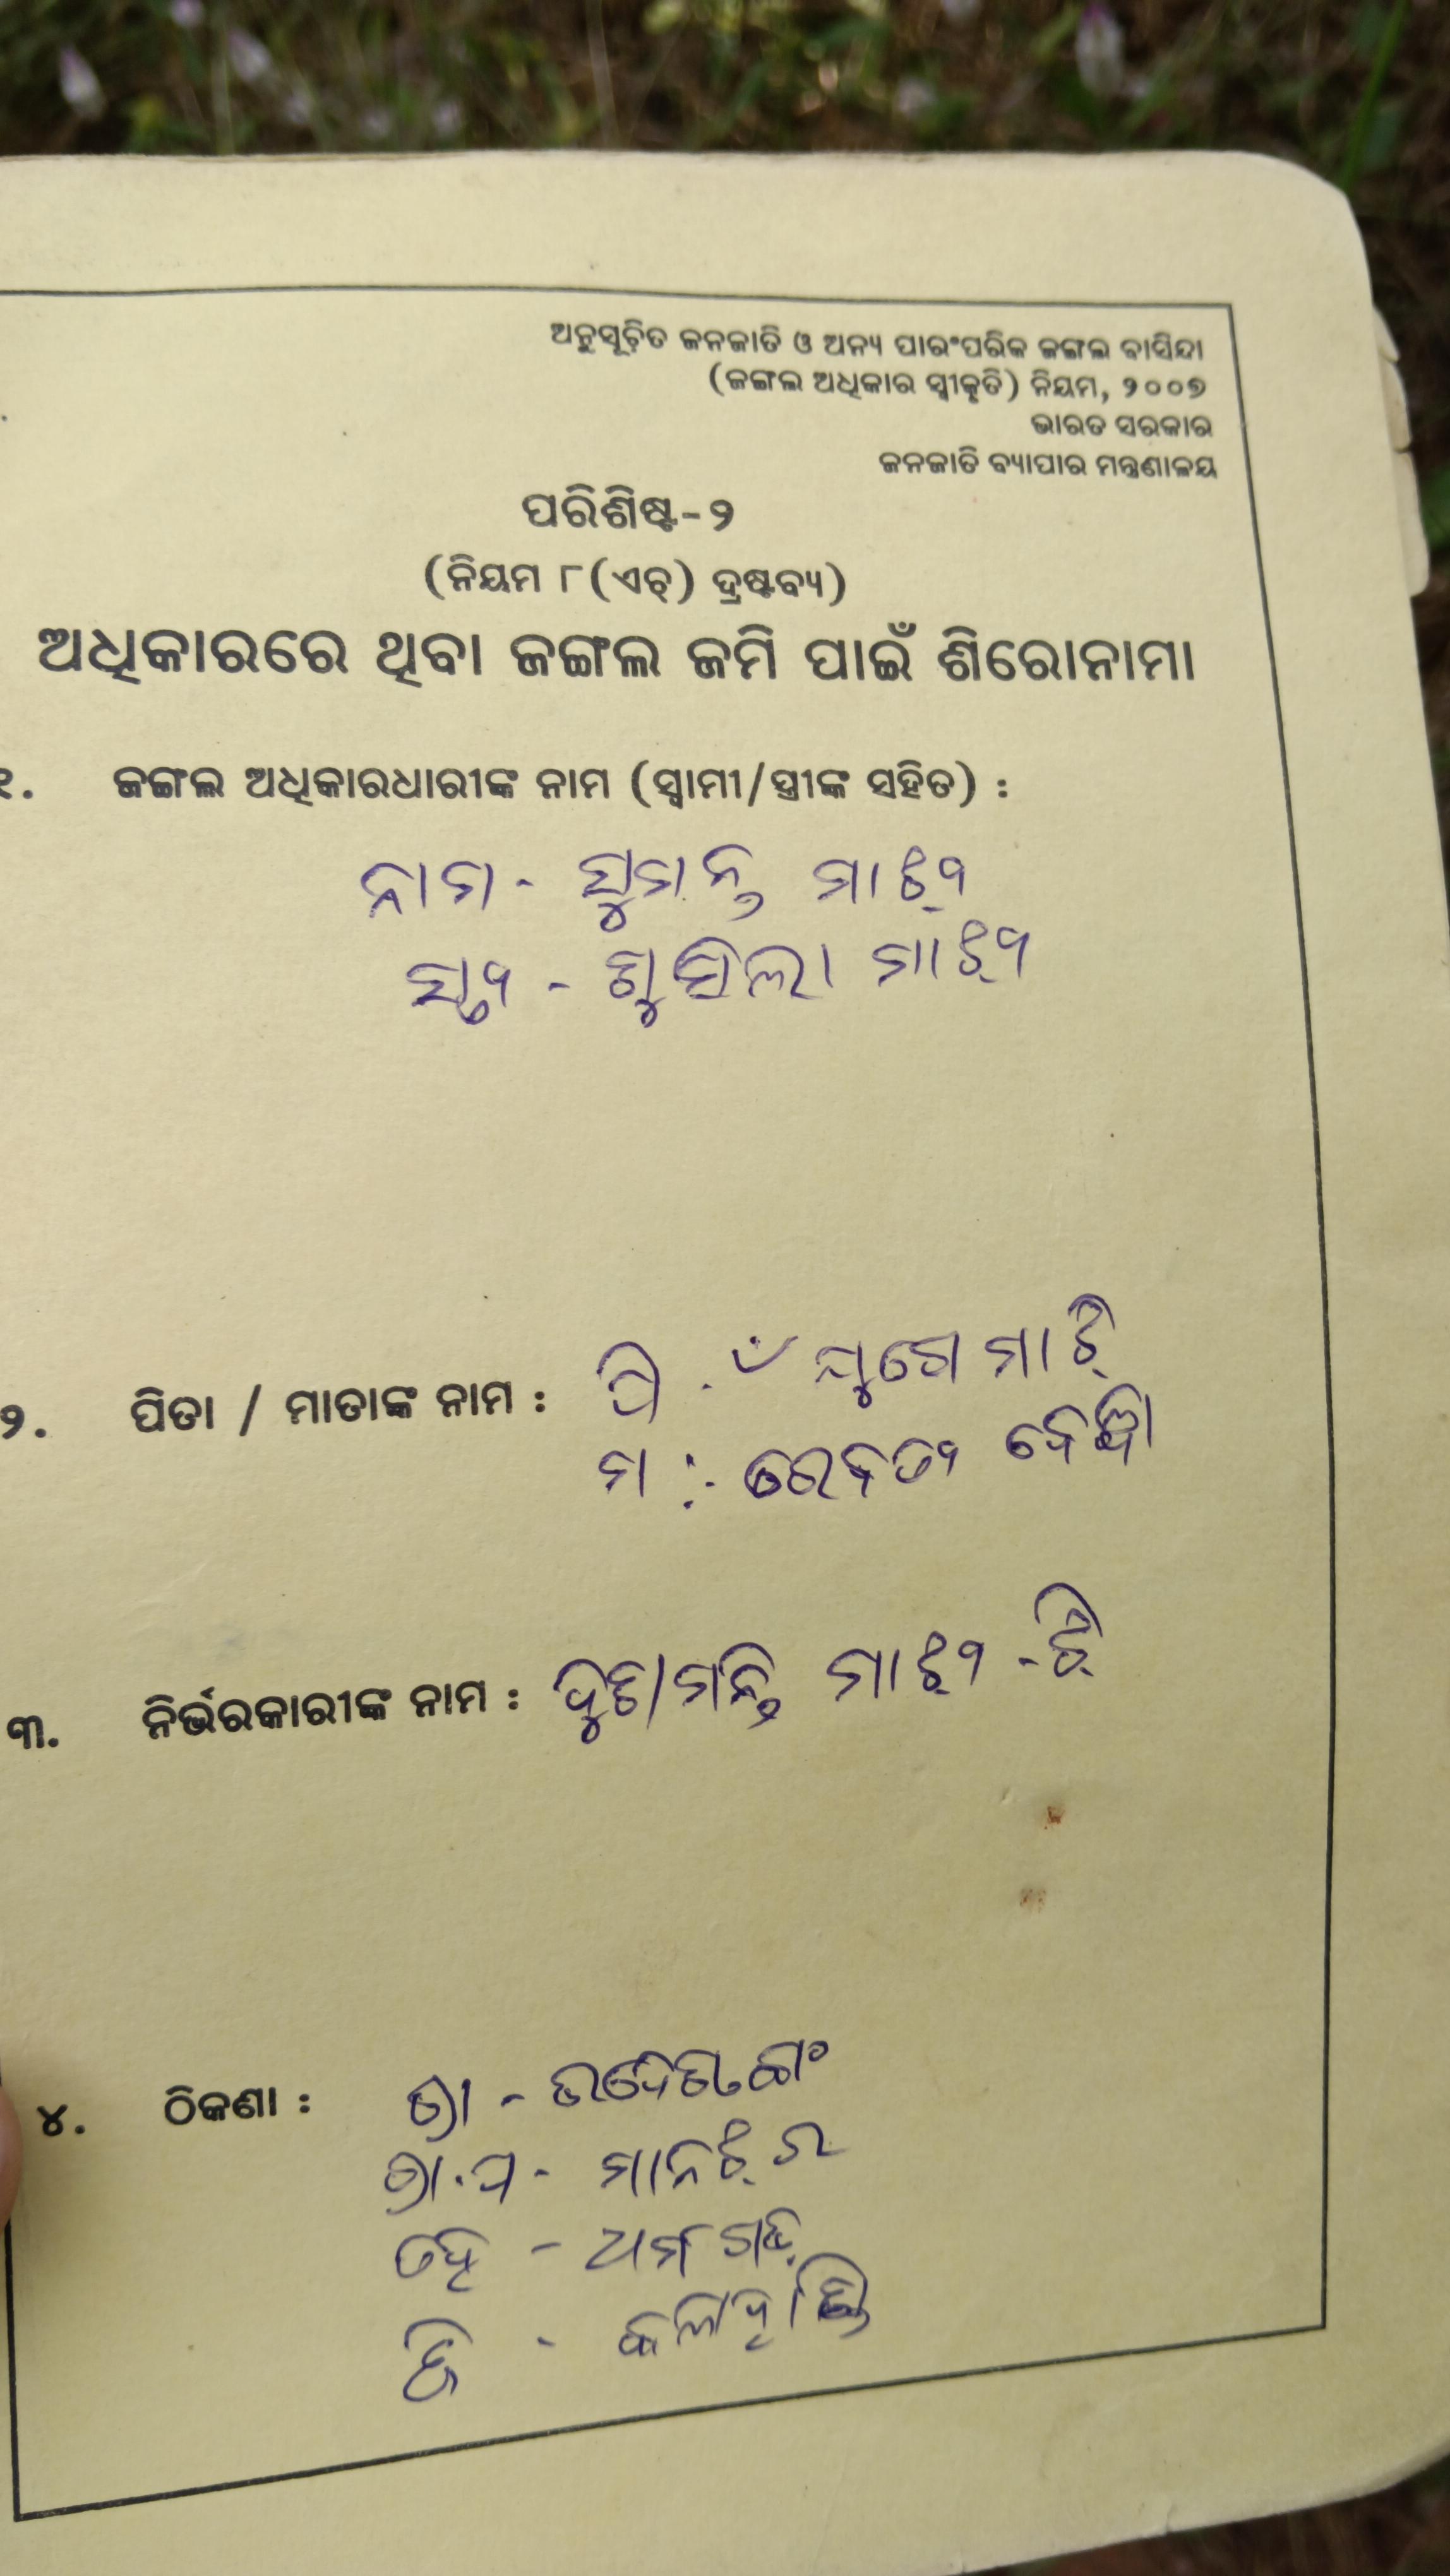 ଅନୁସୂଚିତ ଜନଜାତି ଓ ଅନ୍ୟ ପାରଂପରିକ ଜଙ୍ଗଲ ବାସିନ୍ଦା
(ଜଙ୍ଗଲ ଅଧିକାର ସ୍ୱୀକୃତି) ନିୟମ, ୨୦୦୭
ଭାରତ ସରକାର
ଜନଜାତି ବ୍ୟାପାର ମନ୍ତ୍ରଣାଳୟ
ପରିଶିଷ୍ଟ-୨
(ନିୟମ ୮(ଏଚ୍) ଦ୍ରଷ୍ଟବ୍ୟ)
ଅଧିକାରରେ ଥିବା ଜଙ୍ଗଲ ଜମି ପାଇଁ ଶିରୋନାମା
୧. ଜଙ୍ଗଲ ଅଧିକାରଧାରୀଙ୍କ ନାମ (ସ୍ୱାମୀ/ସ୍ତ୍ରୀଙ୍କ ସହିତ) :
ନାମ - ସୁମନ୍ତ ମାଝୀ
ସ୍ତ୍ରୀ - ମାଝୀ
୨. ପିତା / ମାତାଙ୍କ ନାମ : ପି ମାଝି
ମା :-
୩. ନିର୍ଭରକାରୀଙ୍କ ନାମ : ମାଝୀ - ଝି
୪. ଠିକଣା : ଗ୍ରା -
ଗ୍ରା.ପ -
ତହ - ଧର୍ମଗଡ଼
ଜି - କଳାହାଣ୍ଡି